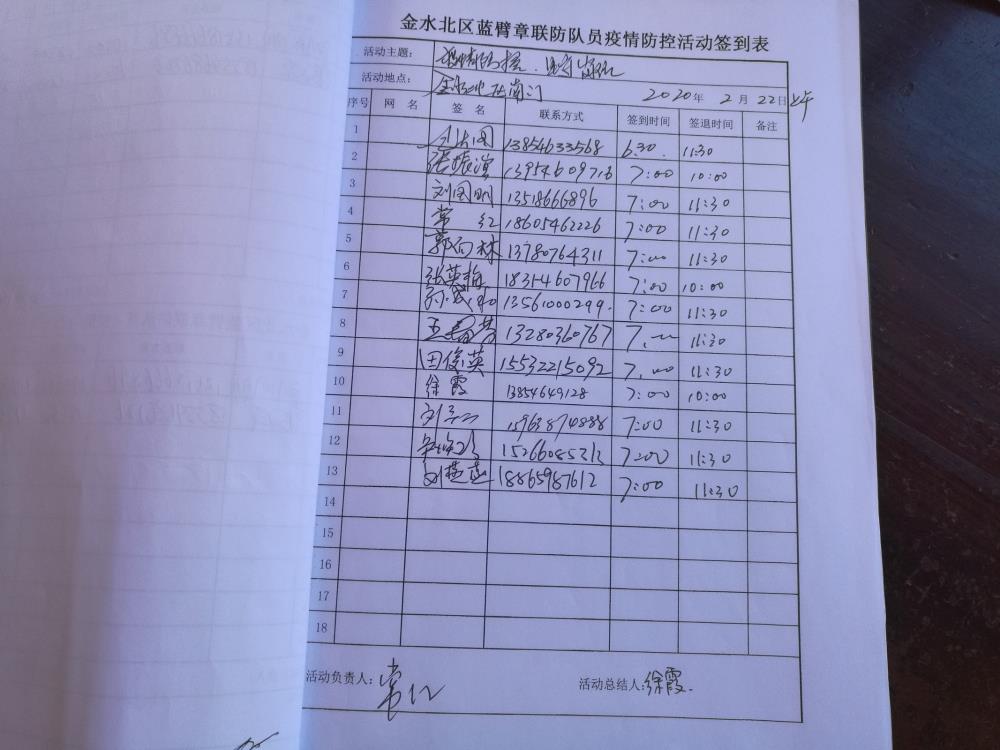 金水北区蓝臂章联防队员疫情防控活动签到表
活动主题： 疫情防控
活动地点： 金水北区南门 2020年 2月 22日
序号 网 名 签 名 联系方式 签到时间 签退时间 备注
1 13854633568 6:30. 11:30
2 张振滨 13954609716 7:00 10:00
3 刘国明 13518666896 7:00 11:30
4 常 红 18605462226 7:00 11:30
5 郭向林 13780764311 7:00 11:30
6 张英梅 18354607966 7:00 10:00
7 13561000299. 7:00 11:30
8 13280360767 7:00 11:30
9 田俊英 15532215092 7:00 11:30
10 徐霞 13854649128 7:00 10:00
11 15963874888 7:00 11:30
12 7:00 11:30
13 18865987612 7:00 11:30
14
15
16
17
18
活动负责人： 常红 活动总结人: 徐霞.